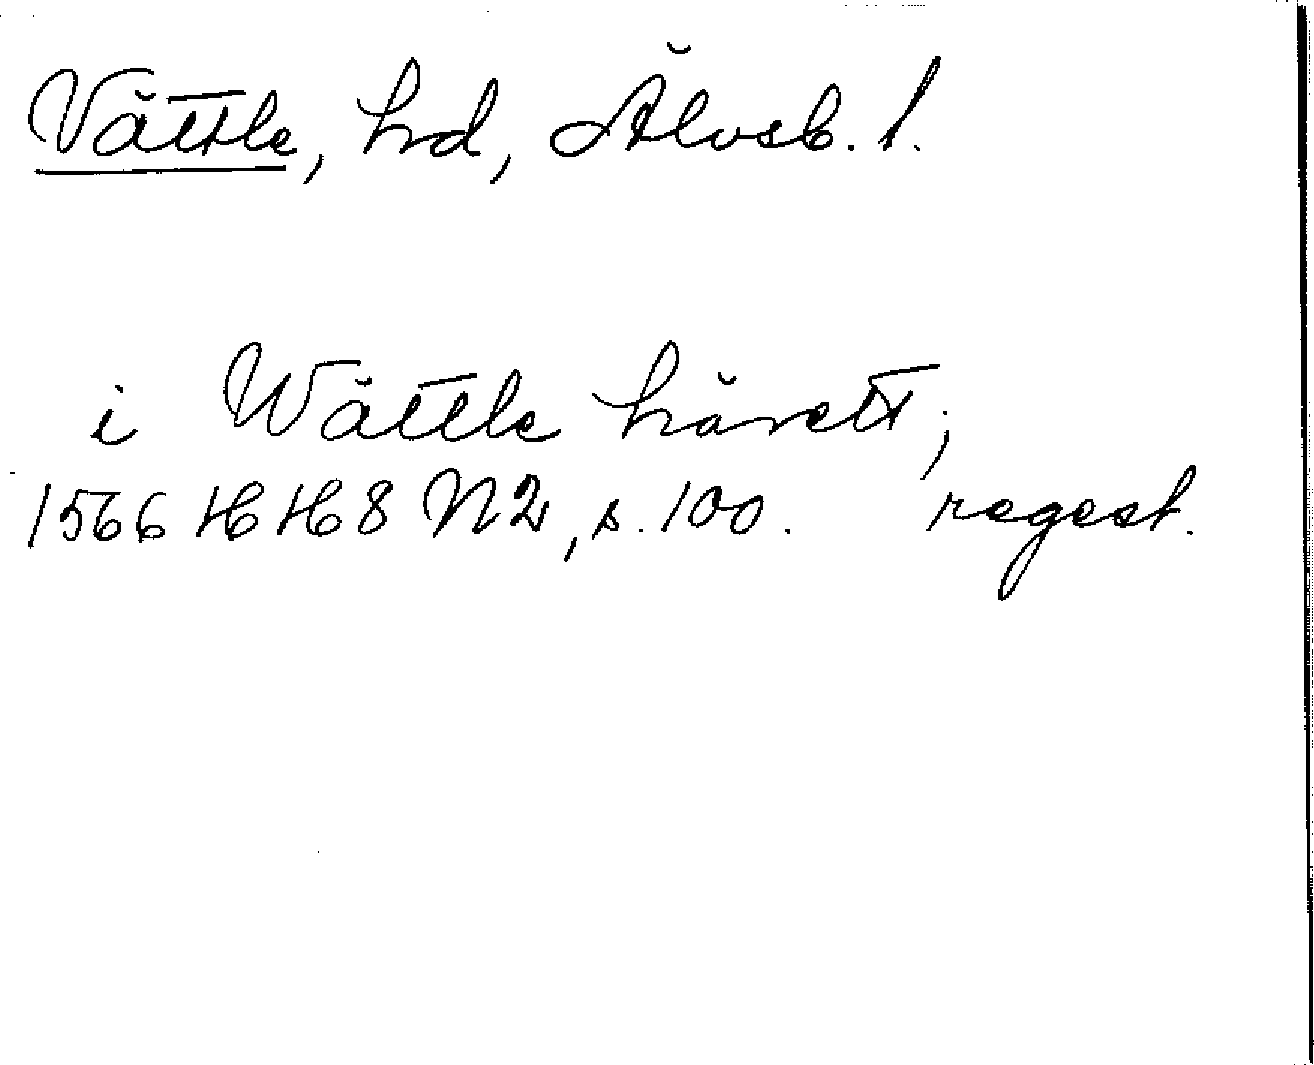 Vättle, hd, Älvsb. l.
i Wättle härett;
1566 HH 8 N 2, s. 100. regest.